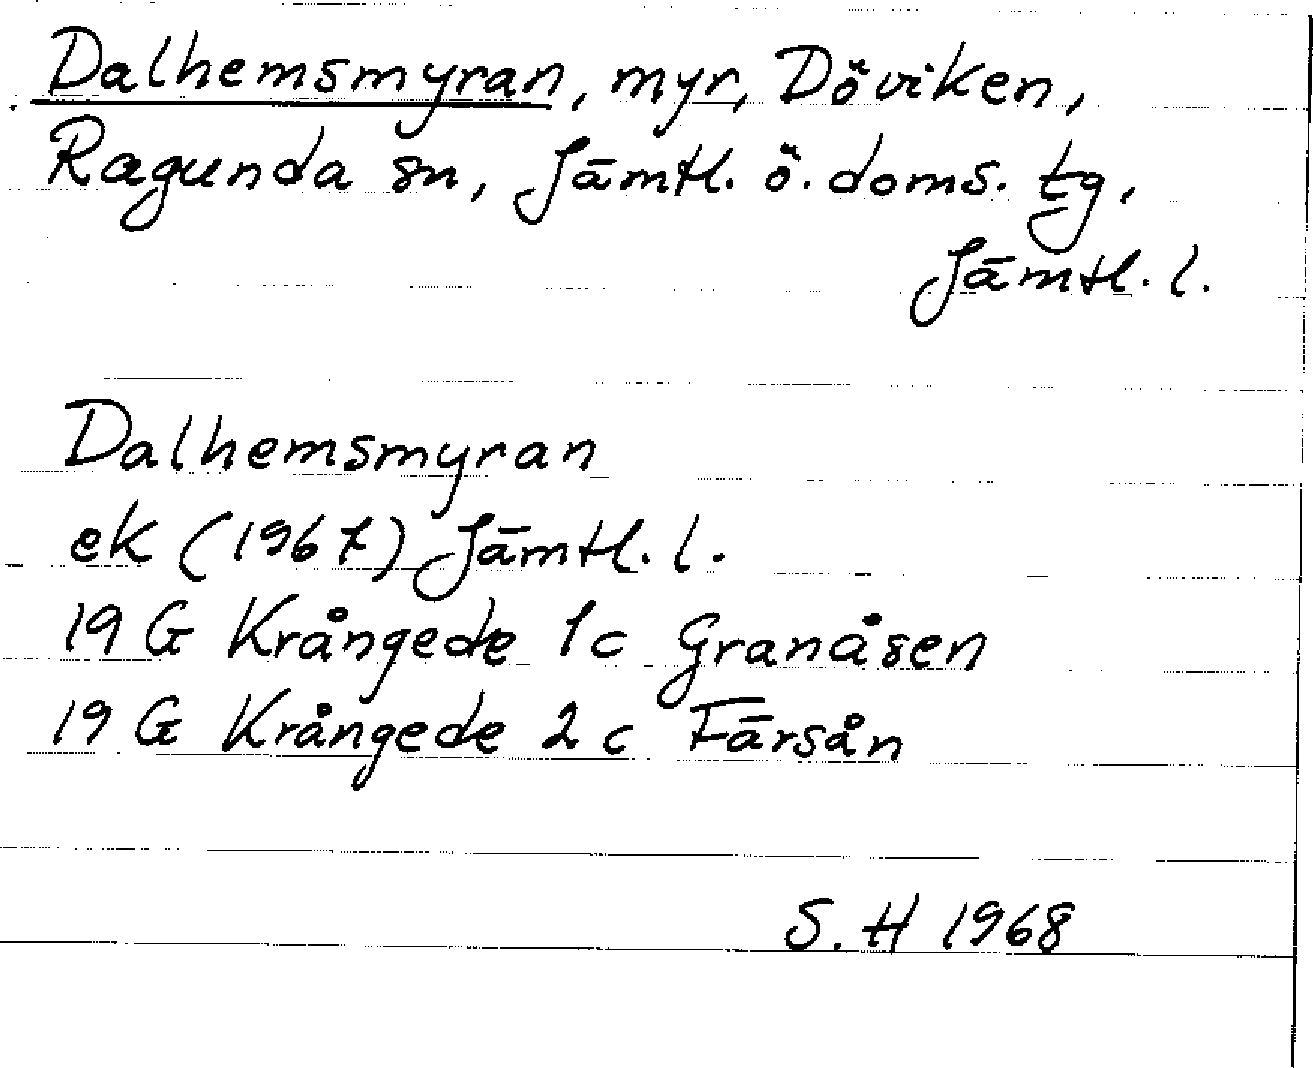 Dalhemsmyran, myr, Döviken,
Ragunda sn, Jämtl. ö. doms. tg,
Jämtl. l.
Dalhemsmyran
ek (1967) Jämtl. l.
19 G Krångede 1c Granåsen
19 G Krångede 2c Färsån
S. H 1968